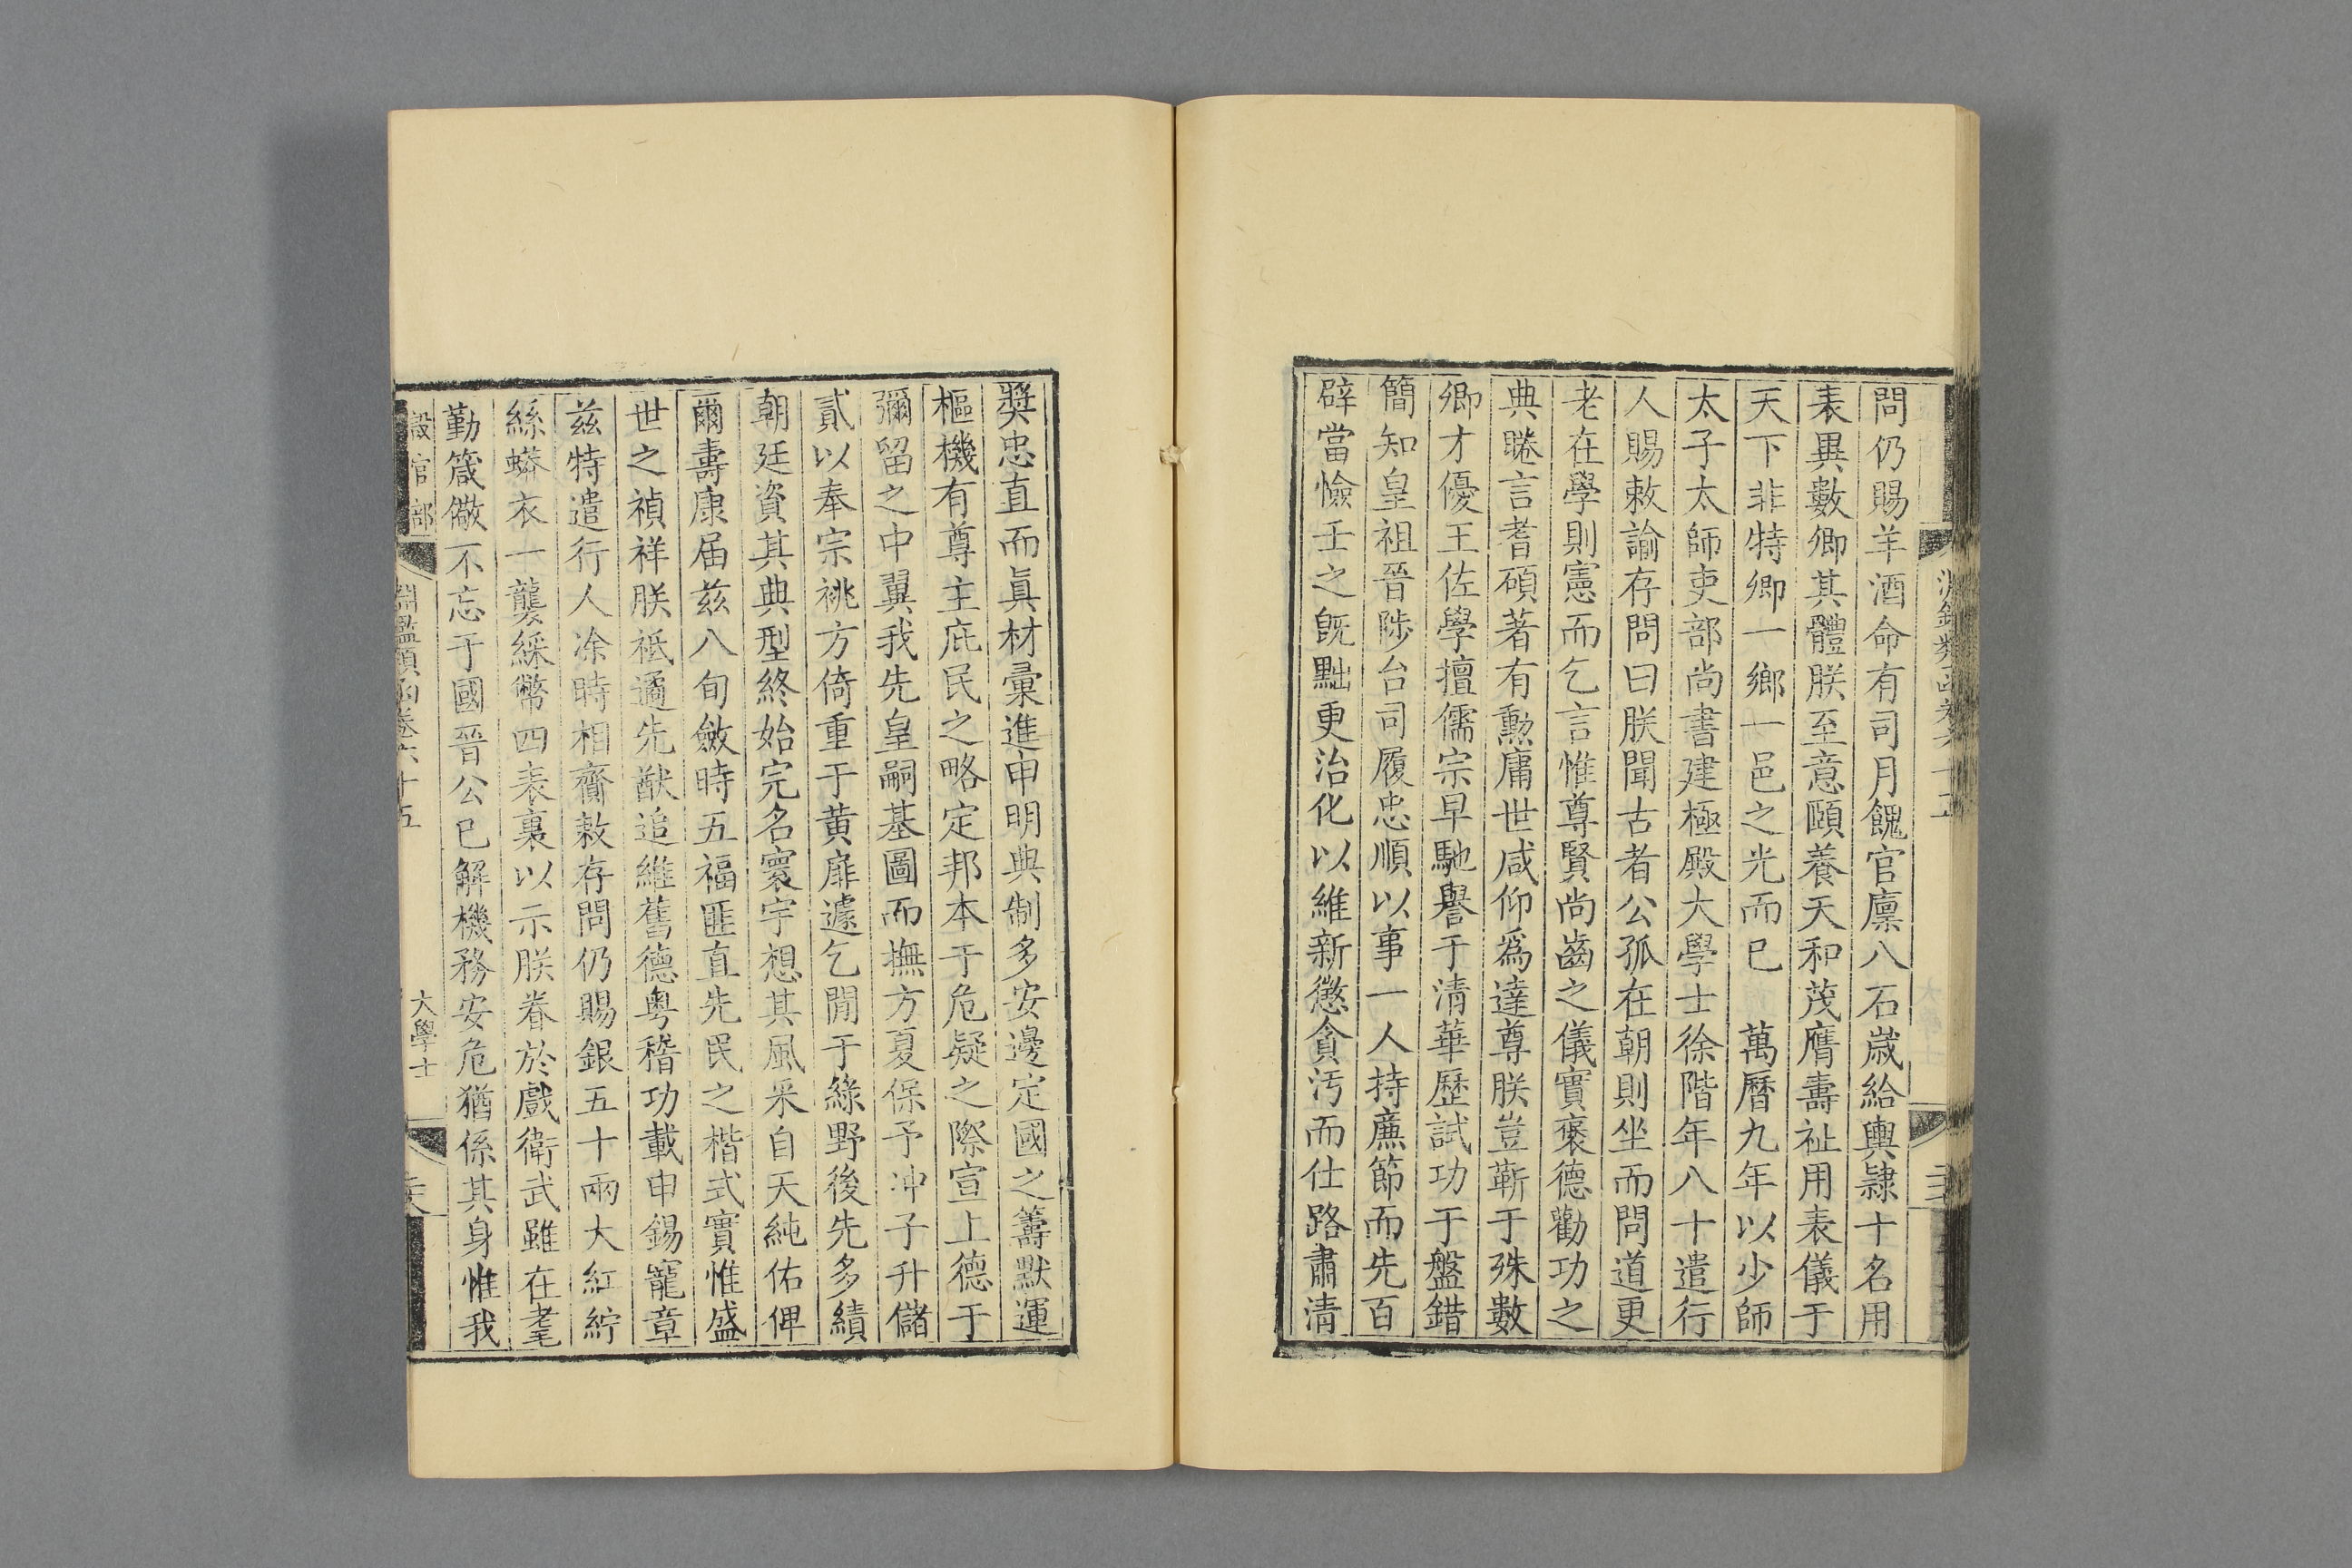 問仍賜羊酒命有司月餽官廩八石歲給輿隷十名用
表異數卿其體朕至意頤養天和茂膺壽祉用表儀于
天下非特卿一鄉一邑之光而已　萬曆九年以少師
太子太師吏部尚書建極殿大學士徐階年八十遣行
人賜敕諭存問曰朕聞古者公孤在朝則坐而問道更
老在學則憲而乞言惟尊賢尚齒之儀實褒德勸功之
典睠言耆碩著有勲庸世咸仰爲達尊朕豈靳于殊數
卿才優王佐學擅儒宗早馳譽于清華歷試功于盤錯
簡知皇祖晉陟台司履忠順以事一人持廉節而先百
辟當憸壬之旣黜更治化以維新懲貪汚而仕路肅清
奬忠直而眞材彙進申明典制多安邊定國之籌默運
樞機有尊主庇民之略定邦本于危疑之際宣上德于
彌留之中翼我先皇嗣基圖而撫方夏保予冲子升儲
貳以奉宗祧方倚重于黄扉遽乞閒于綠野後先多績
朝廷資其典型終始完名寰宇想其風采自天純佑俾
爾壽康届茲八旬斂時五福匪直先民之楷式實惟盛
世之禎祥朕祗遹先猷追維舊德粤稽功載申錫寵章
茲特遣行人凃時相齎敕存問仍賜銀五十兩大紅紵
絲蟒衣一襲綵幣四表裏以示朕眷於戲衛武雖在耄
勤箴儆不忘于國晉公已解機務安危猶係其身惟我
設官部
淵鑑類函卷六十五
大學士